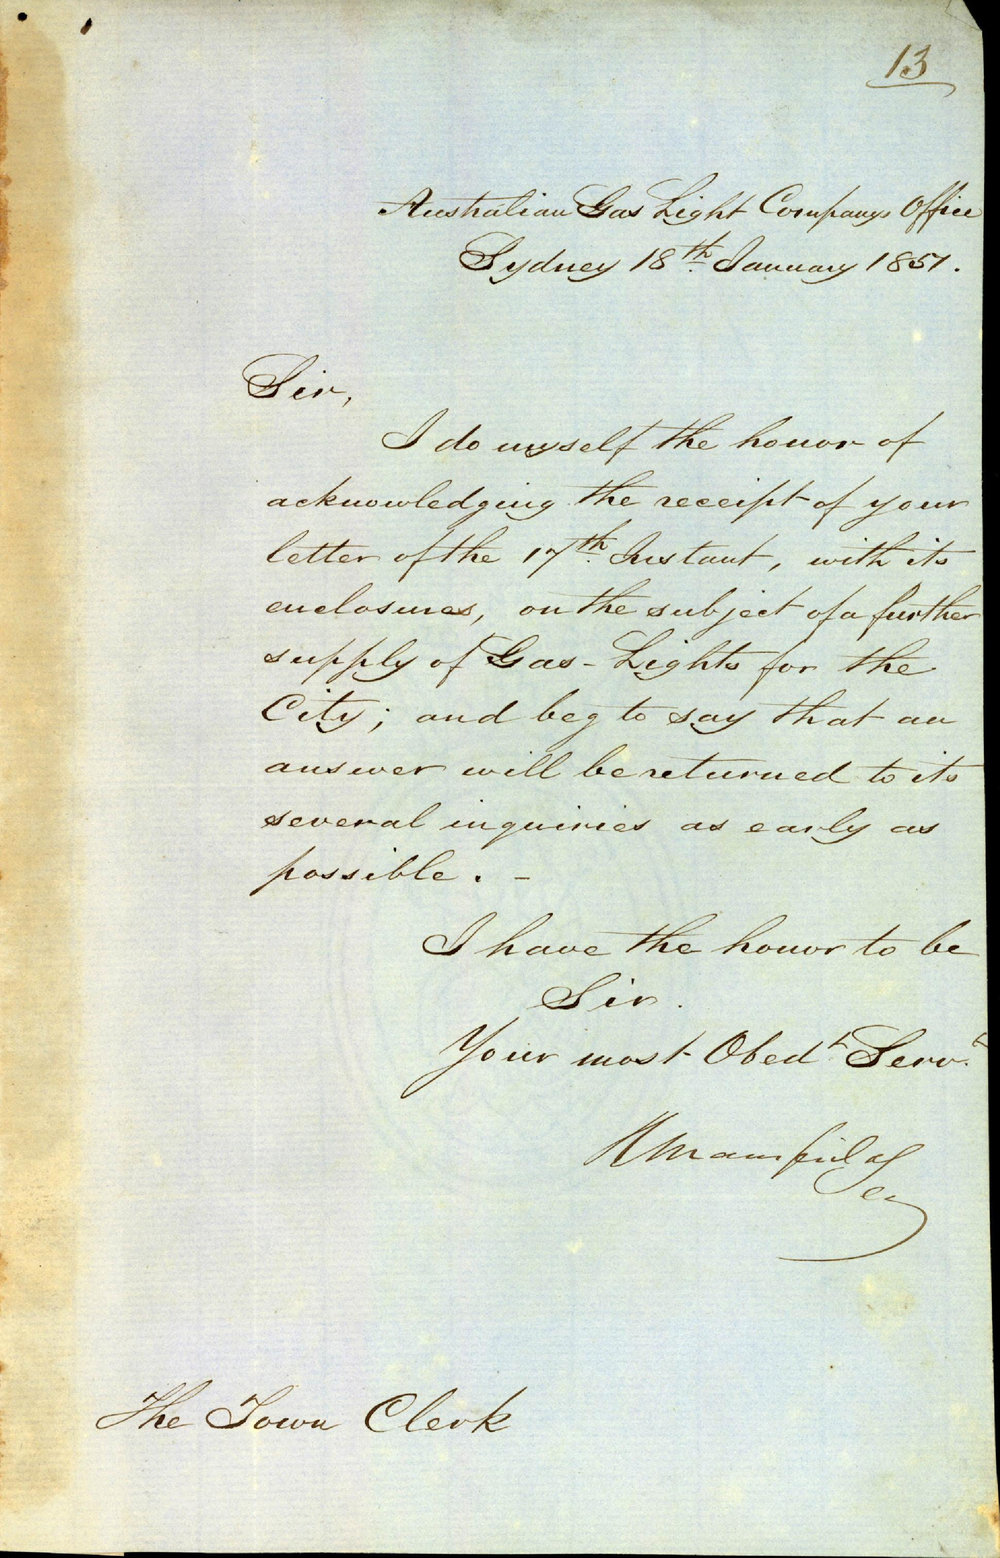 13
Australian Gas Light Company's Office
Sydney 18th January 1851.
Sir,
I do myself the honor of
acknowledging the receipt of your
letter of the 17th Instant, with its
enclosures, on the subject of a further
supply of Gas-Lights for the
City; and beg to say that an
answer will be returned to its
several inquiries as early as
possible. -
I have the honor to be
Sir.
Your most Obedt Servt
R Mansfield
Sec
The Town Clerk